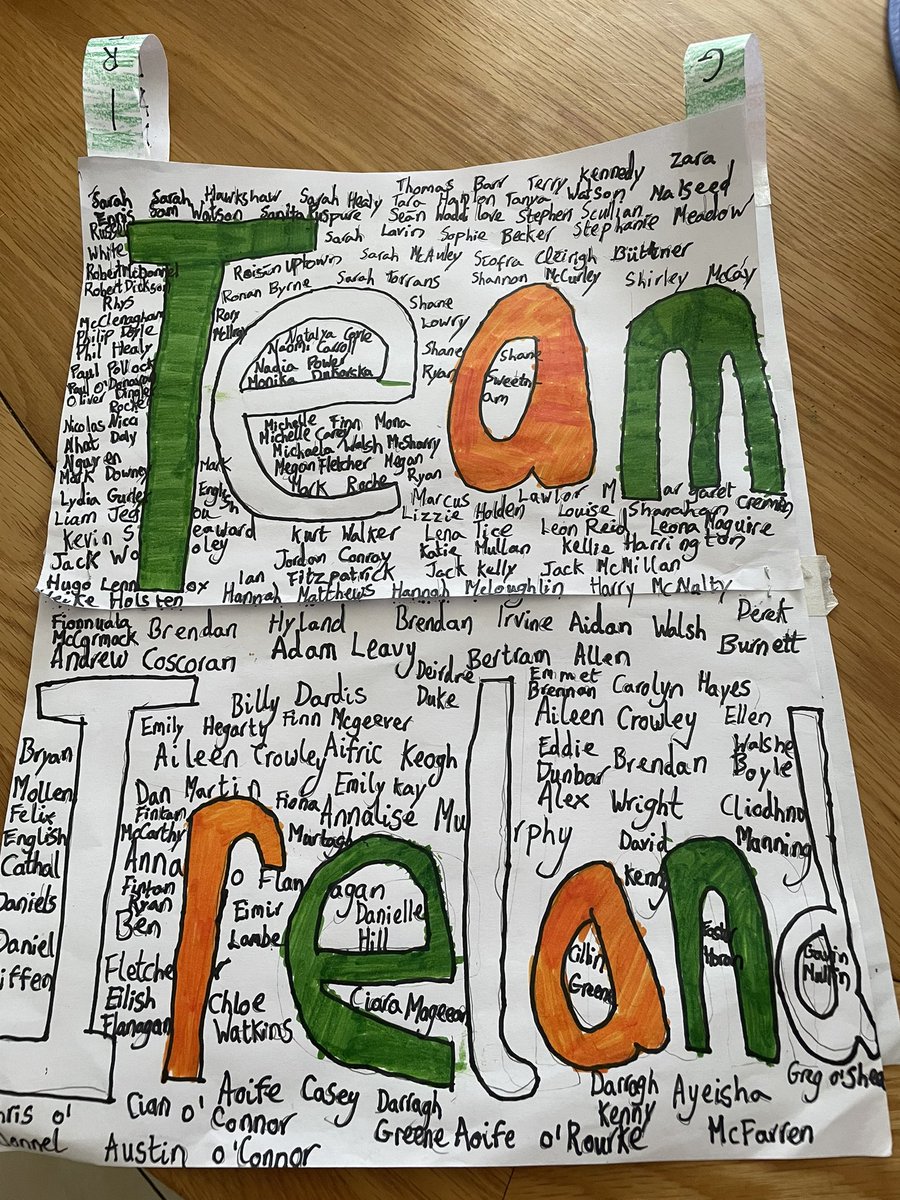 R I
G
Thomas Barr Terry Kennedy Zara
Sarah Sarah Hawkshaw Sarah Healy Tara Hanlon Tanya Watson Nalseed
Ennis Sam Watson Sanita Puspure Sean Waddilove Stephen Scullian Stephanie Meadow
Sarah Lavin Sophie Becker
White
Roisin Uptown Sarah McAuley Scofra Cleirigh Büttner
Robert McDonnel
Robert Dickson Ronan Byrne Sarah Torrans Shannon McCurley Shirley McCay
Rhys Rory Shane
McClenaghan McIlroy Lowry
Philip Doyle Natalya Coyle
Phil Healy Naomi Carroll Shane Shane
Paul Pollock Nadia Power Ryan Sweetn-
Paul O'Donovan Monika Dukarska am
Oliver Dingley
Roche
Team
Nicolas Nicci Michelle Finn Mona
Nhat Daly Michelle Carey
Nguyen Michaela Walsh McSharry
Mark Downey Mark Megan Fletcher Megan
Mark Roche Ryan
Lydia Gurley English Marcus Lawlor M argaret Cremin
Liam Jeg ou sh Lizzie Holden Louise Shanahan
Kevin S eaward Kurt Walker Lena Tice Leon Reid Leona Maguire
Jack Wo oley Jordan Conroy Katie Mullan Kellie Harrington
Ian Fitzpatrick Jack Kelly Jack McMillan
Hugo Lenn ox Hannah Matthews Hannah Mcloughlin Harry McNalty
Heike Holsten
Fionnuala Brendan Hyland Brendan Irvine Aidan Walsh Derek
McCormack Burnett
Andrew Coscoran Adam Leavy Bertram Allen
Deirdre Emmet
Billy Dardis Duke Brennan Carolyn Hayes
Emily Hegarty Finn Mcgeever Aileen Crowley Ellen
Bryan Aileen Crowley Aifric Keogh Eddie Brendan Walshe
Mollen Dan Martin Emily Kay Dunbar Boyle
Felix Fintan Fiona Annalise Mu rphy Alex Wright Cliodhna
English McCarthy Murtagh David Manning
Cathal Anna o Flan agan Kenny
Daniels Fintan
Ryan Eimir Danielle
Ben Lambe Hill
Ireland
Daniel Cillin Gavin
iffen Greene Mullin
Fletcher
Eilish Chloe Ciara Mageean
Flanagan Watkins
Greg o'Shea
hris o' Cian o' Aoife Casey Darragh Darragh Ayeisha
onnel Connor Greene Kenny McFarren
Austin o'Connor Aoife o'Rourke